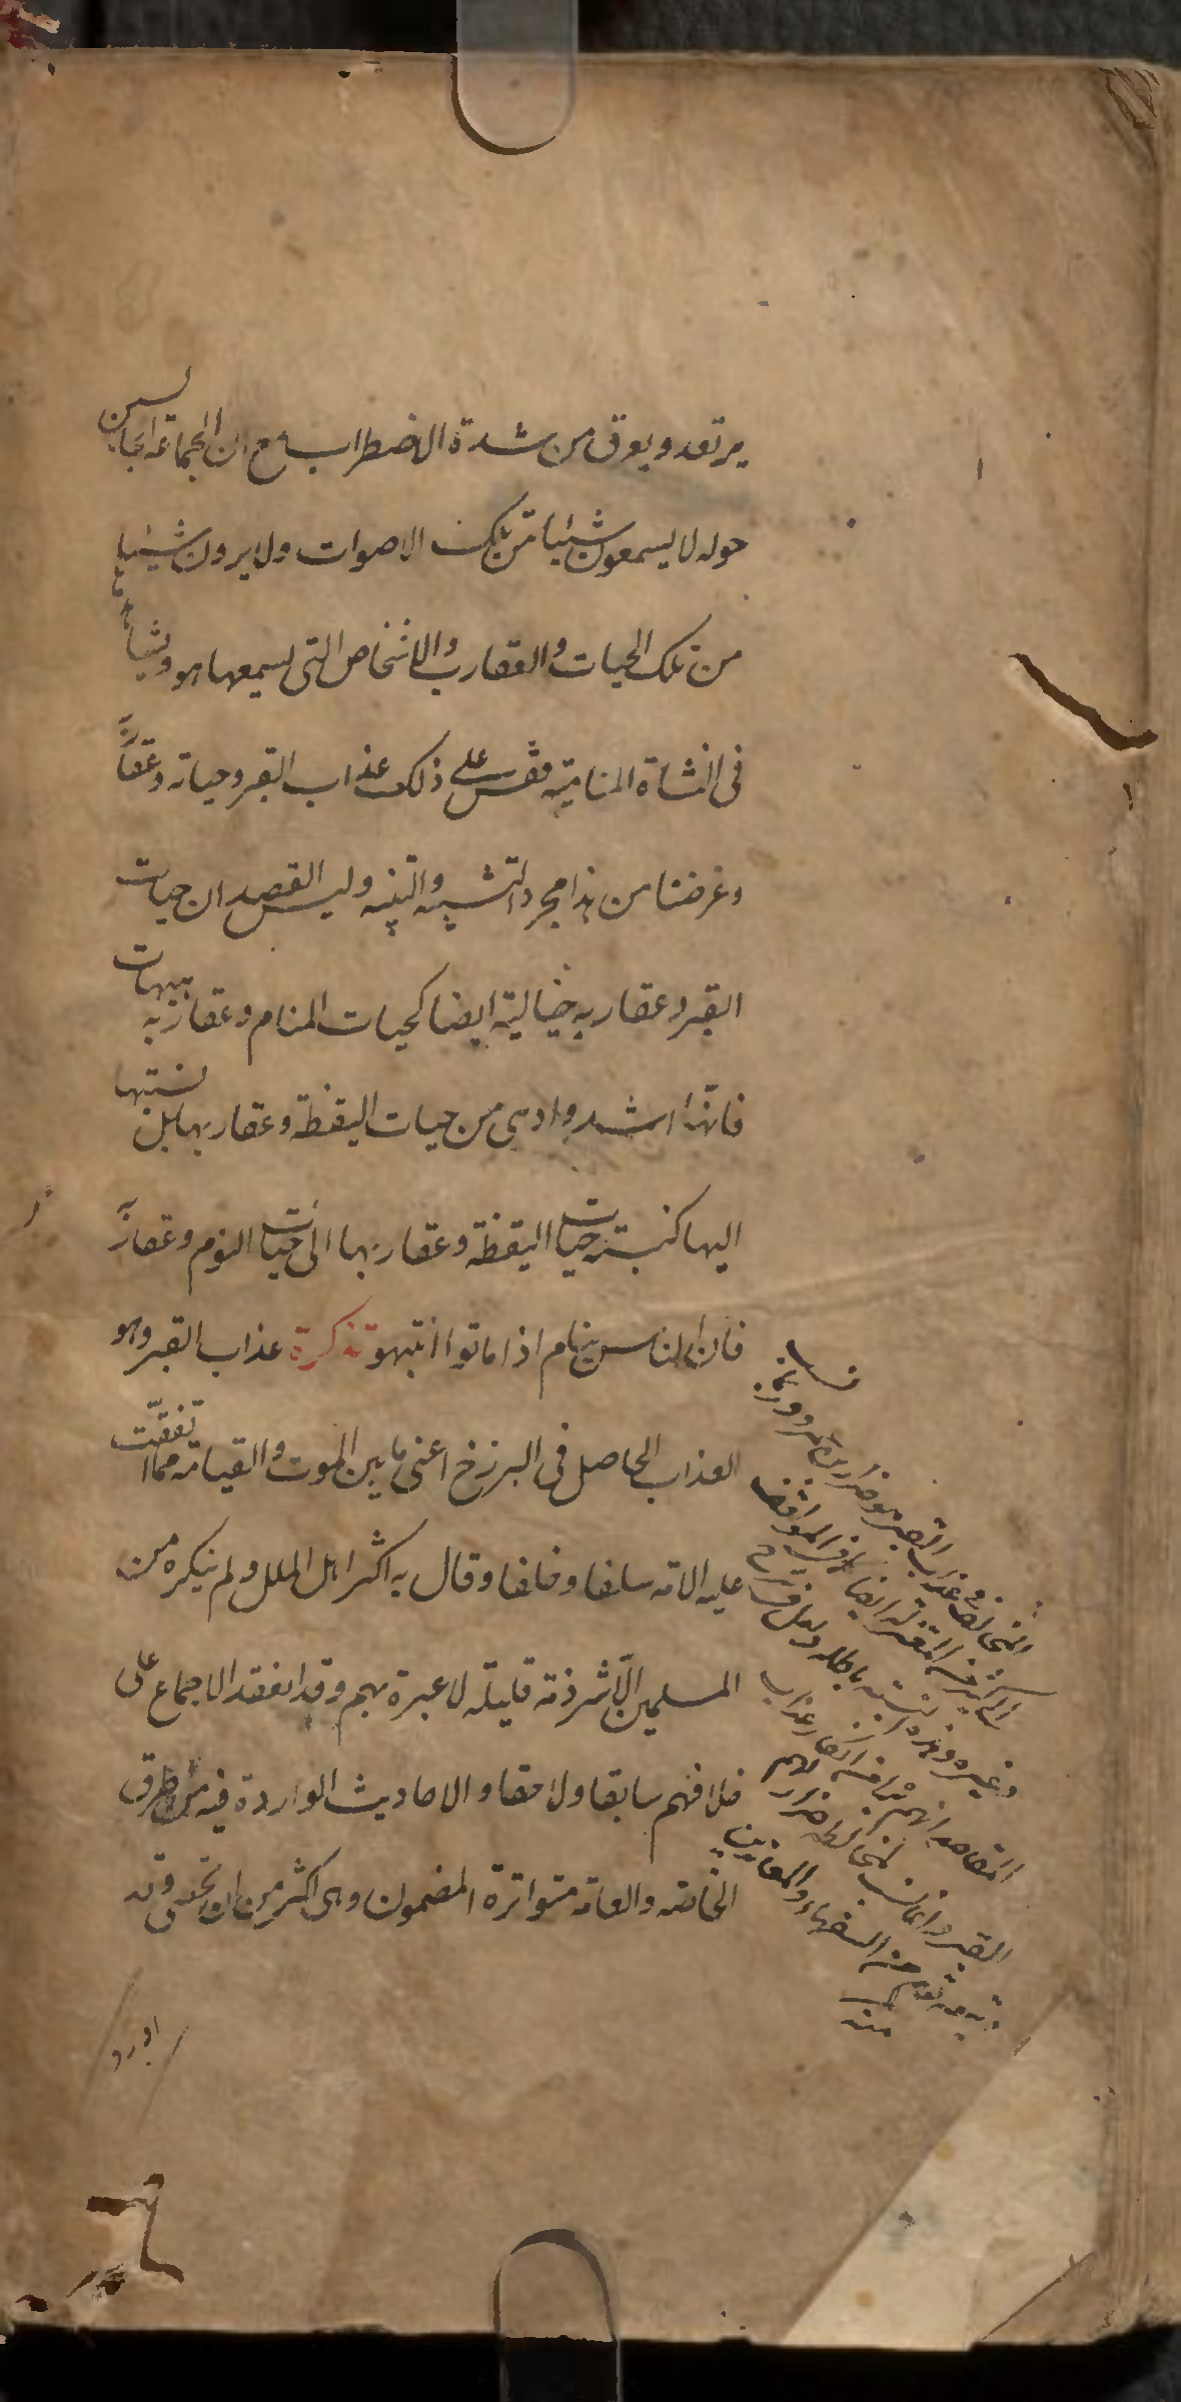 يرتعد ويعرق من شدة الاضطراب مع ان الجماعة الجالسين
حوله لا يسمعون شيئا من تلك الاصوات ولا يرون شيئا
من تلك الحيات والعقارب والاشخاص التي يسمعها هو ويشاهدها
في النشاة المنامية فقس على ذلك عذاب القبر وحياته وعقاربه
وغرضنا من هذا مجرد التشبيه والتنبيه وليس القصد ان حيات
القبر وعقاربه خيالية ايضا كحيات المنام وعقاربه هيهات
فانها اشد وادهى من حيات اليقظة وعقاربها بل نسبتها
اليها كنسبة حيات اليقظة وعقاربها الى حيات النوم وعقاربه
فان الناس نيام اذا ماتوا انتبهوا تذكرة عذاب القبر وهو
العذاب الحاصل في البرزخ اعنى ما بين الموت والقيامة مما اتفقت
عليه الامة سلفا وخلفا وقال به اكثر اهل الملل ولم ينكره من
المسلمين الا شرذمة قليلة لا عبرة بهم وقد انعقد الاجماع على
خلافهم سابقا ولاحقا والاحاديث الواردة فيه من طرق
الخاصة والعامة متواترة المضمون وهى اكثر من ان تحصى وقد
اورد
المخالف في عذاب القبر هو ضرار بن عمرو وربما نسب
الى المعتزلة ايضا في المواقف
وغيره وهذه النسبة باطلة
المقاصد انكار عذاب
القبر وانما نسب لمخالطة ضرار لهم
من السفهاء والمعاندين
منه